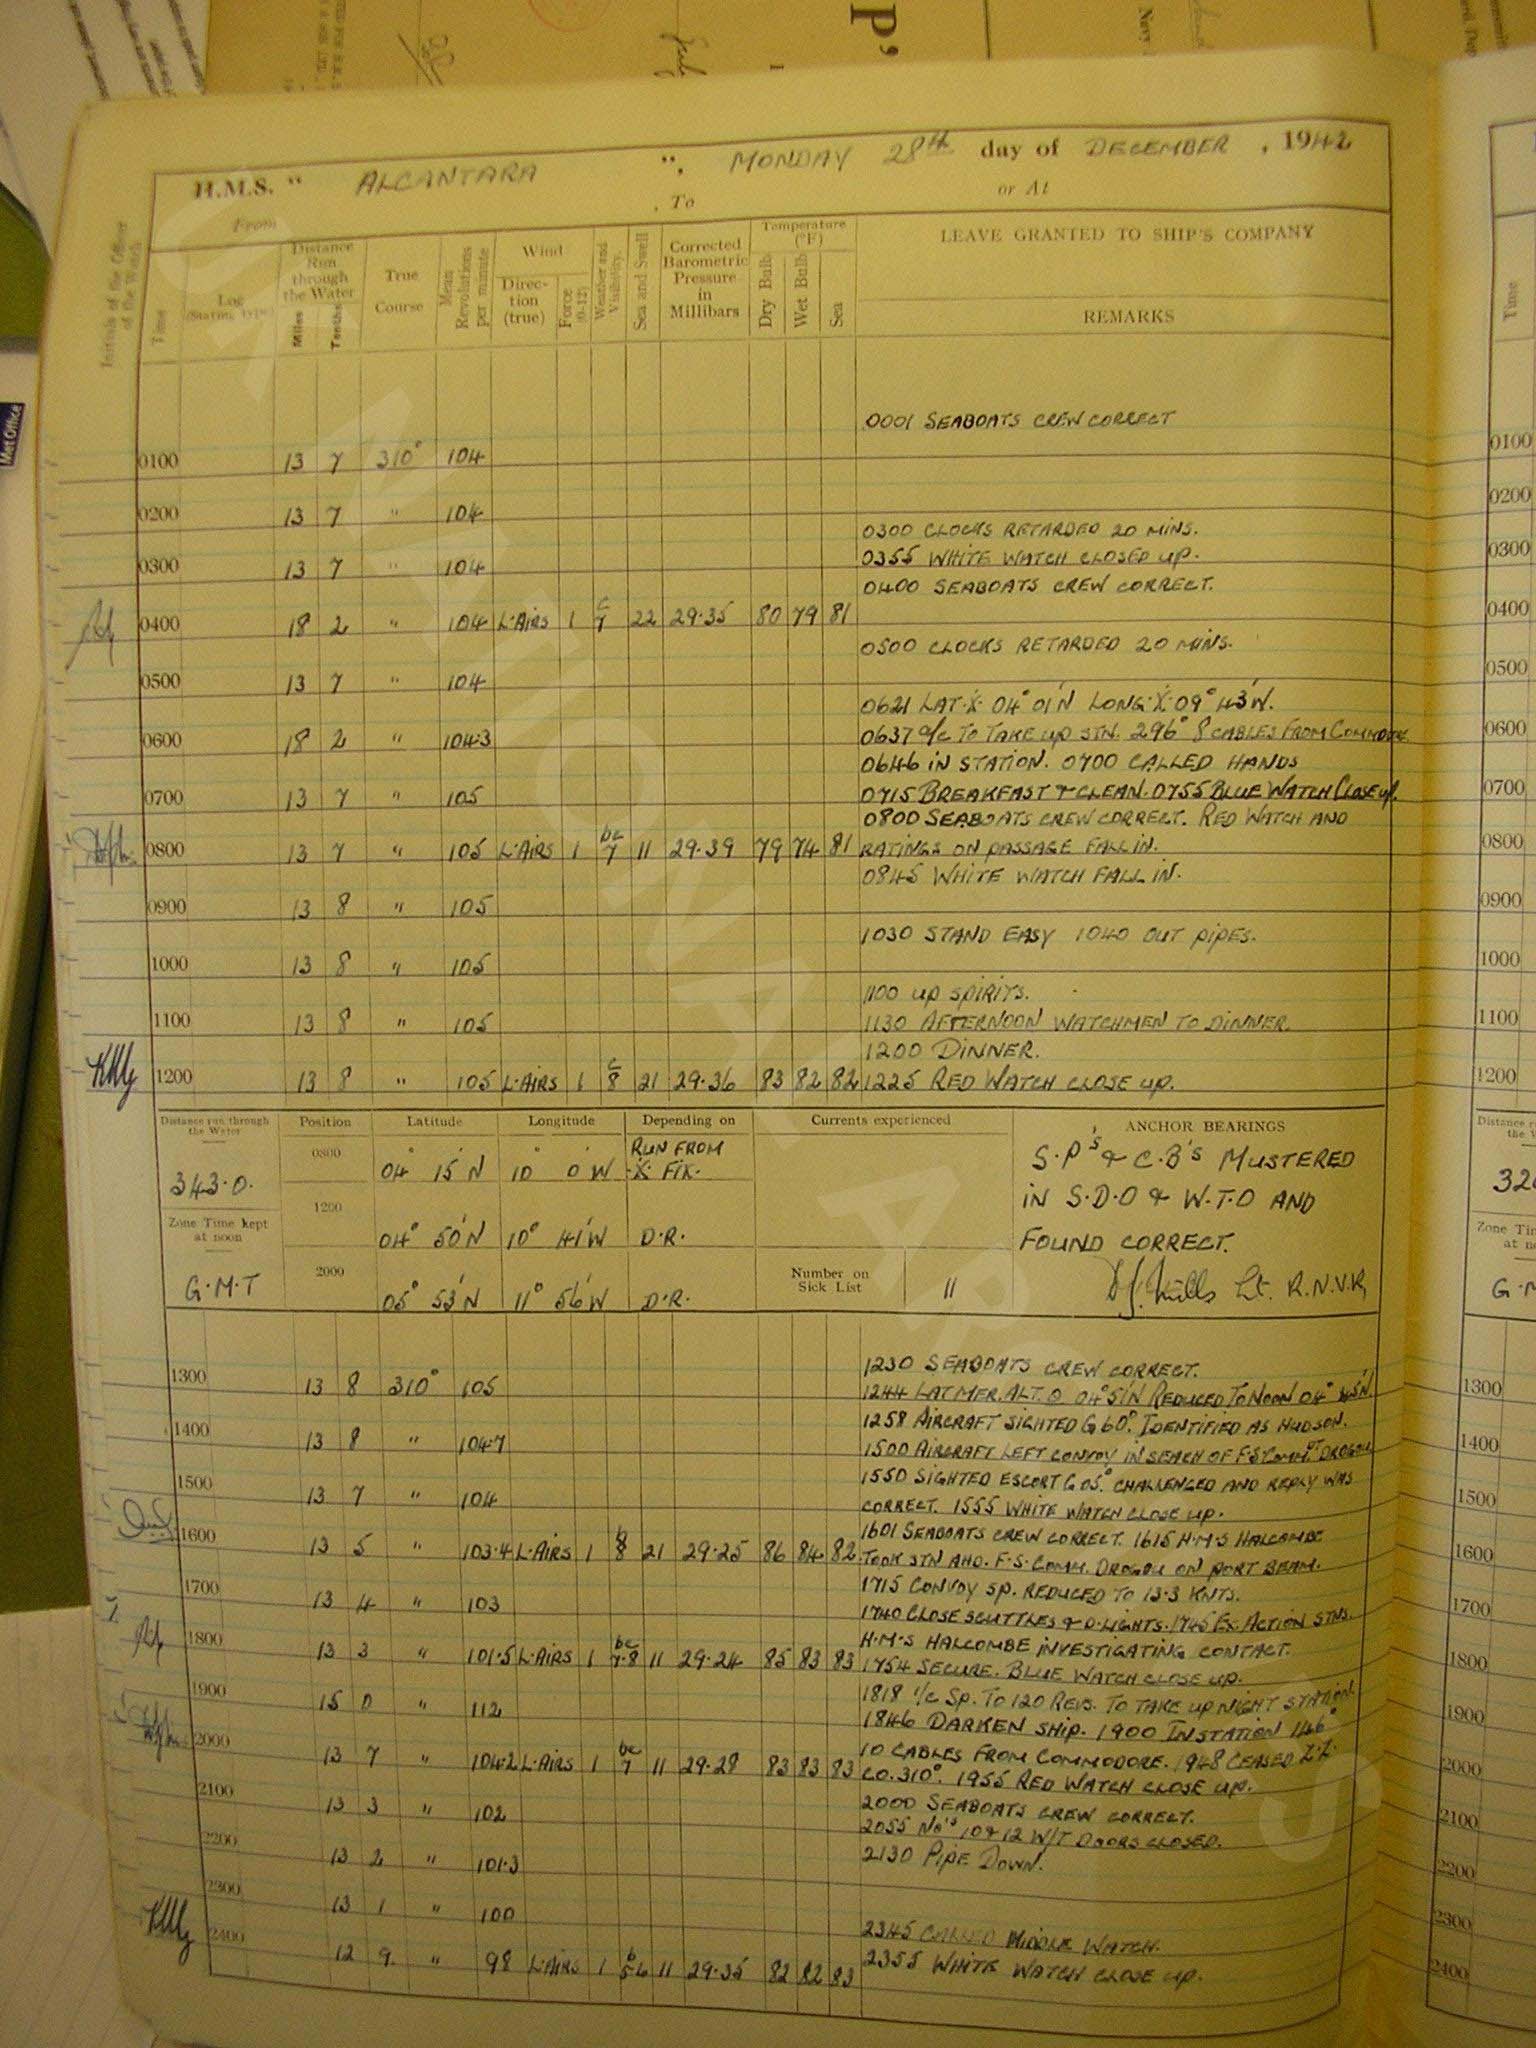 H.M.S. " ALCANTARA ", MONDAY 28th day of DECEMBER, 1942
From , To or At
Initials of the Officer of the Watch
Time
Log (Stating type)
Distance Run through the Water
Miles Tenths
True Course
Mean Revolutions per minute
Wind
Direction (true)
Force (0-12)
Weather and Visibility
Sea and Swell
Corrected Barometric Pressure in Millibars
Temperature (°F)
Dry Bulb Wet Bulb Sea
LEAVE GRANTED TO SHIP'S COMPANY
REMARKS
0001 SEABOATS CREW CORRECT
0100 13 7 310° 104
0200 13 7 " 104
0300 CLOCKS RETARDED 20 MINS.
0355 WHITE WATCH CLOSED UP.
0300 13 7 " 104
0400 SEABOATS CREW CORRECT.
0400 18 2 " 104 L·AIRS 1 c 7 22 29·35 80 79 81
0500 CLOCKS RETARDED 20 MINS.
0500 13 7 " 104
0621 LAT·X· 04° 01'N LONG·X· 09° 43'W.
0600 18 2 " 104·3
0637 a/c TO TAKE UP STN. 296° 8 CABLES FROM COMMODORE
0646 IN STATION. 0700 CALLED HANDS
0700 13 7 " 105
0715 BREAKFAST & CLEAN. 0755 BLUE WATCH CLOSE UP.
0800 SEABOATS CREW CORRECT. RED WATCH AND
0800 13 7 " 105 L·AIRS 1 bc 7 11 29·39 79 74 81
RATINGS ON PASSAGE FALL IN.
0845 WHITE WATCH FALL IN.
0900 13 8 " 105
1030 STAND EASY 1040 OUT PIPES.
1000 13 8 " 105
1100 UP SPIRITS.
1100 13 8 " 105
1130 AFTERNOON WATCHMEN TO DINNER.
1200 DINNER.
1200 13 8 " 105 L·AIRS 1 c 8 21 29·36 83 82 82
1225 RED WATCH CLOSE UP.
Distance run through the Water
343·0.
Zone Time kept at noon
G·M·T
Position Latitude Longitude Depending on
0800 04° 15'N 10° 0'W RUN FROM ·X· FIX.
1200 04° 50'N 10° 41'W D·R.
2000 05° 53'N 11° 56'W D·R.
Currents experienced
Number on Sick List 11
ANCHOR BEARINGS
S.P's & C.B's MUSTERED
IN S.D.O & W.T.O AND
FOUND CORRECT.
Mills Lt. R.N.V.R.
1230 SEABOATS CREW CORRECT.
1300 13 8 310° 105
1244 LAT MER. ALT. 04° 51'N REDUCED TO NOON 04°
1258 AIRCRAFT SIGHTED G 60°. IDENTIFIED AS HUDSON.
1400 13 8 " 104·7
1500 AIRCRAFT LEFT CONVOY IN SEACH OF F.S. COMMDT. DROGOU
1550 SIGHTED ESCORT G 05°. CHALLENGED AND REPLY WAS
1500 13 7 " 104
CORRECT. 1555 WHITE WATCH CLOSE UP.
1601 SEABOATS CREW CORRECT. 1615 H·M·S HALCOMBE
1600 13 5 " 103·4 L·AIRS 1 b 8 21 29·25 86 84 82
TOOK STN AHD. F·S· COMM. DROGOU ON PORT BEAM.
1715 CONVOY SP. REDUCED TO 13·3 KNTS.
1700 13 4 " 103
1740 CLOSE SCUTTLES & D·LIGHTS. 1745 EX. ACTION STNS.
H·M·S HALCOMBE INVESTIGATING CONTACT.
1800 13 3 " 101·5 L·AIRS 1 bc 7·8 11 29·24 85 83 83
1754 SECURE. BLUE WATCH CLOSE UP.
1818 I/c SP. TO 120 REVS. TO TAKE UP NIGHT STATION
1900 15 0 " 112
1846 DARKEN SHIP. 1900 IN STATION 146°
10 CABLES FROM COMMODORE. 1948 CEASED Z·Z·
2000 13 7 " 104·2 L·AIRS 1 bc 7 11 29·28 83 83 83
CO. 310°. 1955 RED WATCH CLOSE UP.
2000 SEABOATS CREW CORRECT.
2100 13 3 " 102
2055 No's 10 & 12 W/T DOORS CLOSED.
2130 PIPE DOWN.
2200 13 2 " 101·3
2300 13 1 " 100
2345 CALLED MIDDLE WATCH.
2400 12 9 " 98 L·AIRS 1 b 11 29·35 82 82 83
2355 WHITE WATCH CLOSE UP.
Met Office
Time
0100
0200
0300
0400
0500
0600
0700
0800
0900
1000
1100
1200
Zone
G·M
1300
1400
1500
1600
1700
1800
1900
2000
2100
2200
2300
2400